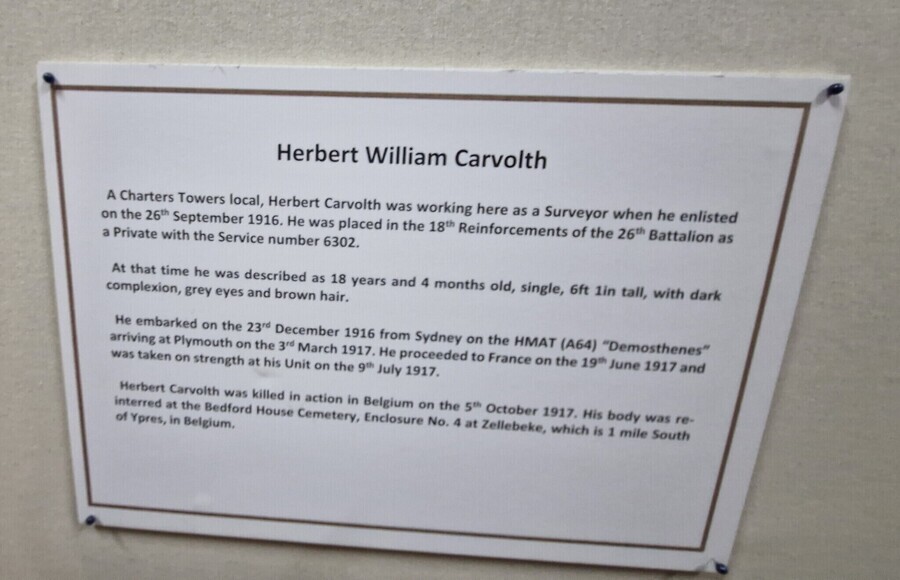 Herbert William Carvolth
A Charters Towers local, Herbert Carvolth was working here as a Surveyor when he enlisted
on the 26th September 1916. He was placed in the 18th Reinforcements of the 26th Battalion as
a Private with the Service number 6302.
At that time he was described as 18 years and 4 months old, single, 6ft 1in tall, with dark
complexion, grey eyes and brown hair.
He embarked on the 23rd December 1916 from Sydney on the HMAT (A64) "Demosthenes"
arriving at Plymouth on the 3rd March 1917. He proceeded to France on the 19th June 1917 and
was taken on strength at his Unit on the 9th July 1917.
Herbert Carvolth was killed in action in Belgium on the 5th October 1917. His body was re-
interred at the Bedford House Cemetery, Enclosure No. 4 at Zellebeke, which is 1 mile South
of Ypres, in Belgium.